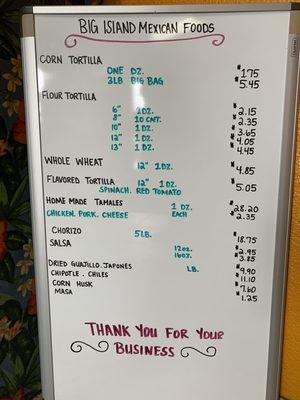 BIG ISLAND MEXICAN FOODS
CORN TORTILLA
ONE DZ. $1.75
3LB BIG BAG $5.45
FLOUR TORTILLA
6" 1 DZ. $2.15
8" 10 CNT. $2.35
10" 1 DZ. $3.65
12" 1 DZ. $4.05
13" 1 DZ. $4.45
WHOLE WHEAT 12" 1 DZ. $4.85
FLAVORED TORTILLA 12" 1 DZ. $5.05
SPINACH. RED TOMATO
HOME MADE TAMALES 1 DZ. $28.20
CHICKEN. PORK. CHEESE EACH $2.35
CHORIZO 5LB. $18.75
SALSA 12oz. $2.95
16oz. $3.85
DRIED GUAJILLO. JAPONÉS LB. $9.90
CHIPOTLE. CHILES $11.10
CORN HUSK $7.60
MASA $1.25
THANK YOU FOR YOUR
BUSINESS